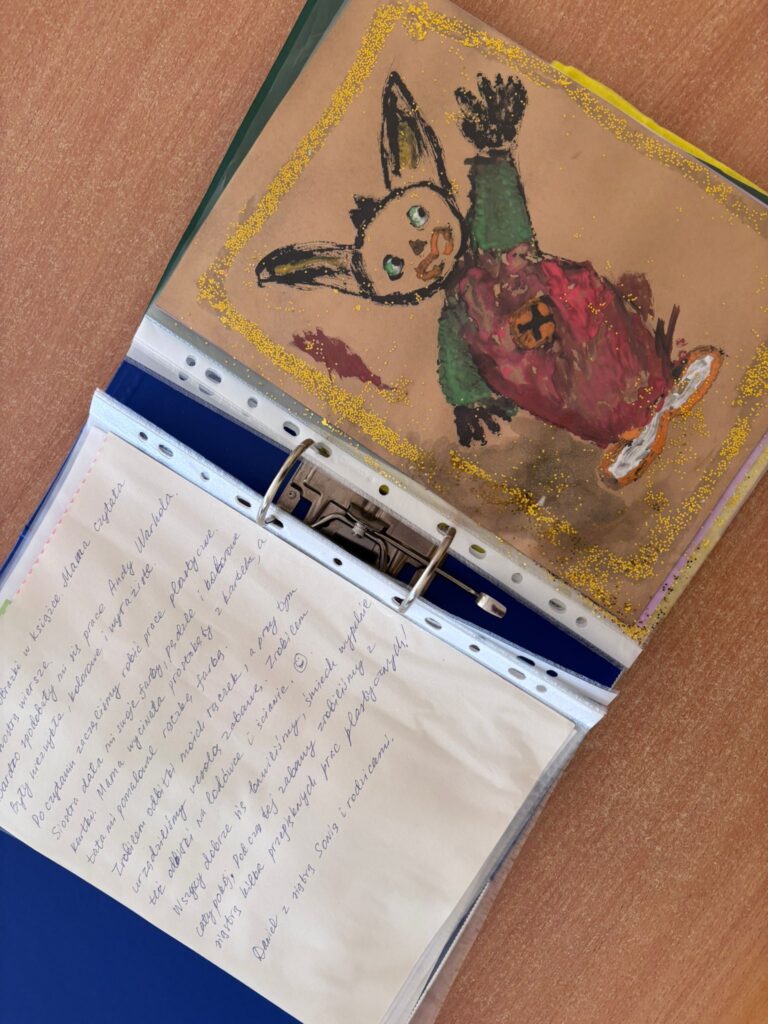 w książce. Mama czytała
siostrą wiersze.
bardzo spodobały mi się prace Andy Warhola.
Były niezwykle kolorowe i wyraziste.
Po czytaniu zaczęliśmy robić prace plastyczne.
Siostra dała mi swoje farby, pędzle i kolorowe
kartki. Mama wycinała prostokąty z kartek, a
tata mi pomalował rączkę farbą.
Zrobiłem odbitki moich rączek, a przy tym
urządziliśmy wesołą zabawę. Zrobiłem
też odbitki na lodówce i ścianie. ☺
Wszyscy dobrze się bawiliśmy, śmiech wypełnił
cały pokój. Podczas tej zabawy zrobiliśmy z
siostrą kilka przepięknych prac plastycznych!
Daniel z siostrą Sonią i rodzicami.